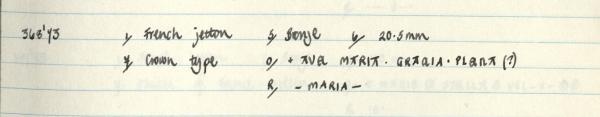 368'73 1, French jetton 5, Bronze 6, 20.5mm
4, Crown type O, + AVE MARIA · GRACIA · PLENA (?)
R, - MARIA -